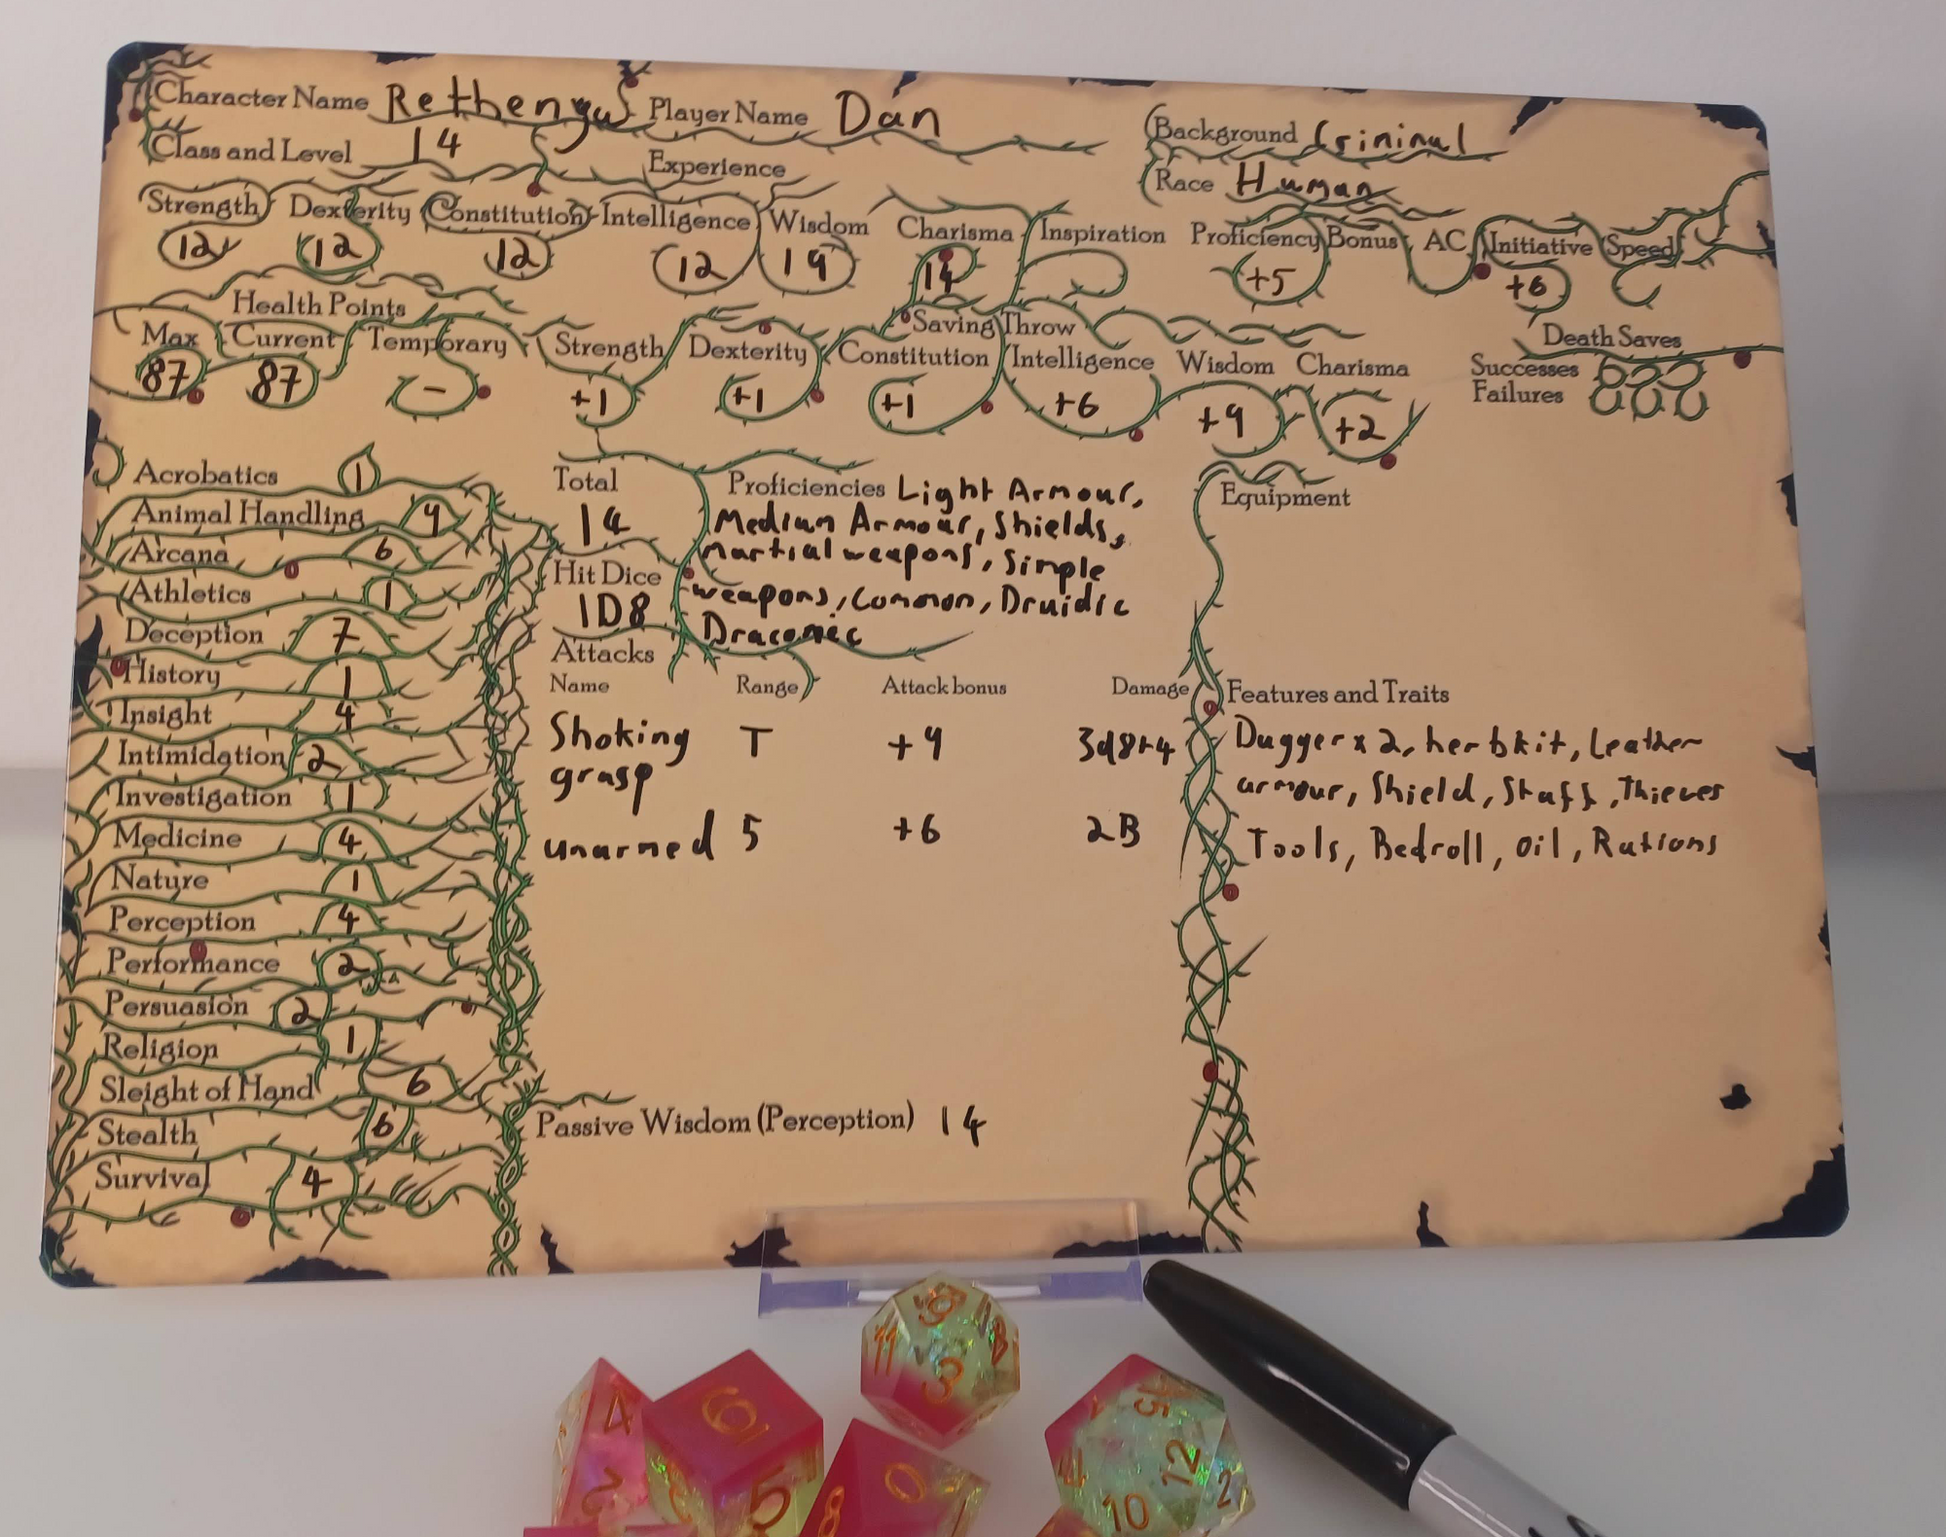 Character Name Rethengus Player Name Dan
Background Criminal
Class and Level 14
Experience
Race Human
Strength Dexterity Constitution Intelligence Wisdom Charisma Inspiration Proficiency Bonus AC Initiative Speed
12 12 12 12 19 14 +5 +6
Health Points
Saving Throw
Death Saves
Max Current Temporary Strength Dexterity Constitution Intelligence Wisdom Charisma
87 87 - +1 +1 +1 +6 +9 +2
Successes
Failures
Acrobatics 1
Animal Handling 9
Arcana 6
Athletics 1
Deception 7
History 1
Insight 4
Intimidation 2
Investigation 1
Medicine 4
Nature 1
Perception 4
Performance 2
Persuasion 2
Religion 1
Sleight of Hand 6
Stealth 6
Survival 4
Total
14
Hit Dice
1D8
Proficiencies Light Armour,
Medium Armour, Shields,
martial weapons, Simple
weapons, Common, Druidic
Draconic
Equipment
Attacks
Name Range Attack bonus Damage
Shoking T +9 3d8+4
grasp
unarmed 5 +6 2B
Features and Traits
Dagger x 2, herbkit, Leather
armour, Shield, Staff, Thieves
Tools, Bedroll, oil, Rations
Passive Wisdom (Perception) 14
9
11 8
3
4 6 5
5 0 12
8 10 2